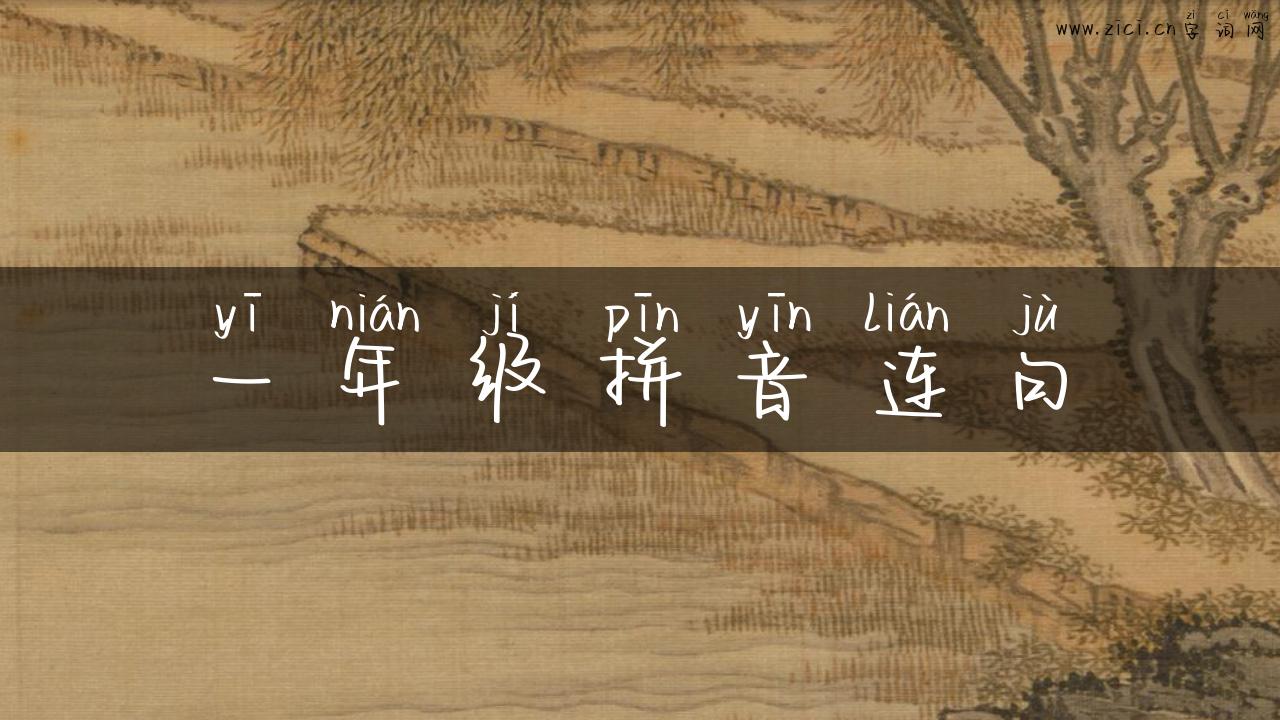 zì cí wǎng
www.zici.cn字词网
yī nián jí pīn yīn lián jù
一年级拼音连句